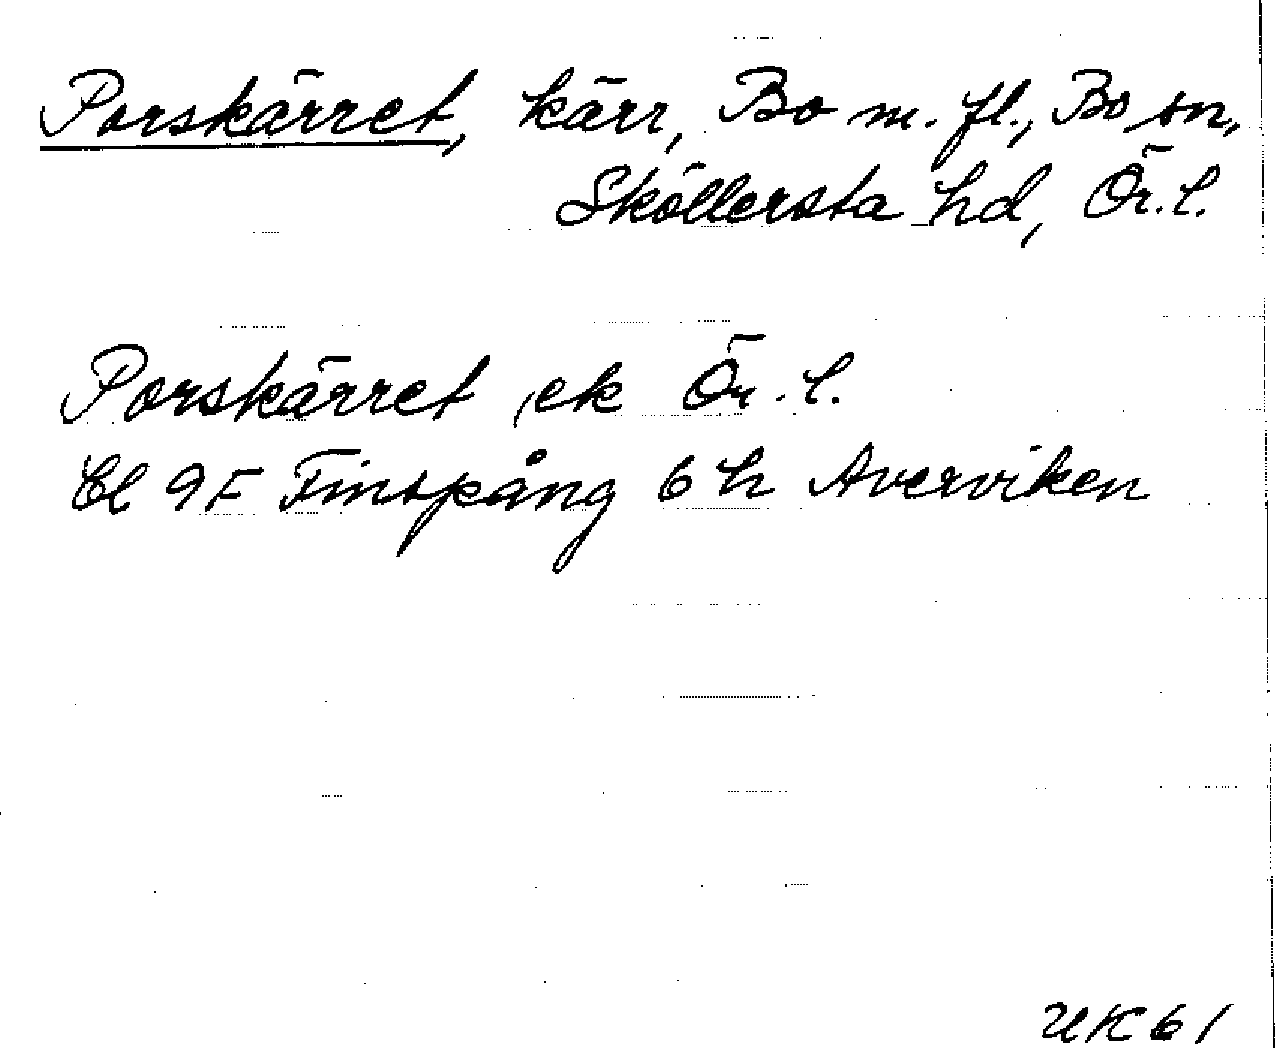 Porskärret, kärr, Bo m. fl., Bo sn,
Sköllersta hd, Ör. l.
Porskärret, ek Ör. l.
Bl 9F Finspång 6 h Averviken
UK 61